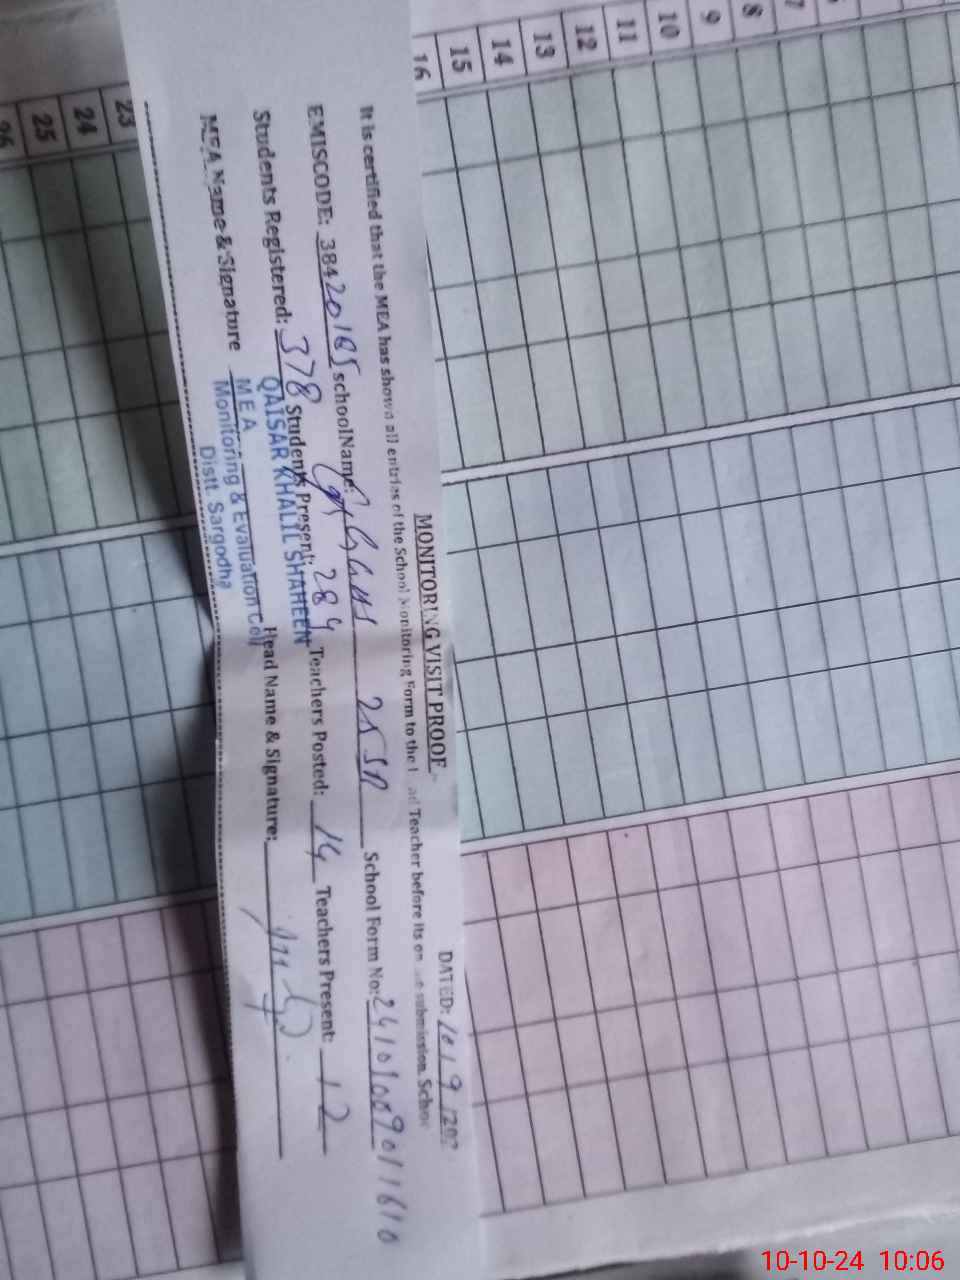 MONITORING VISIT PROOF
DATED: 10/9/202
It is certified that the MEA has shown all entries of the School Monitoring Form to the Head Teacher before its on submission. School
EMISCODE: 38420185 schoolName: 25 SB School Form No: 24101009011610
Students Registered: 378 Students Present: 284 Teachers Posted: 14 Teachers Present: 12
MEA Name & Signature Head Name & Signature:
QAISAR KHALIL SHAHEEN
MEA
Monitoring & Evaluation Cell
Distt. Sargodha
7 8 9 10 11 12 13 14 15 16
23 24 25 26
10-10-24 10:06